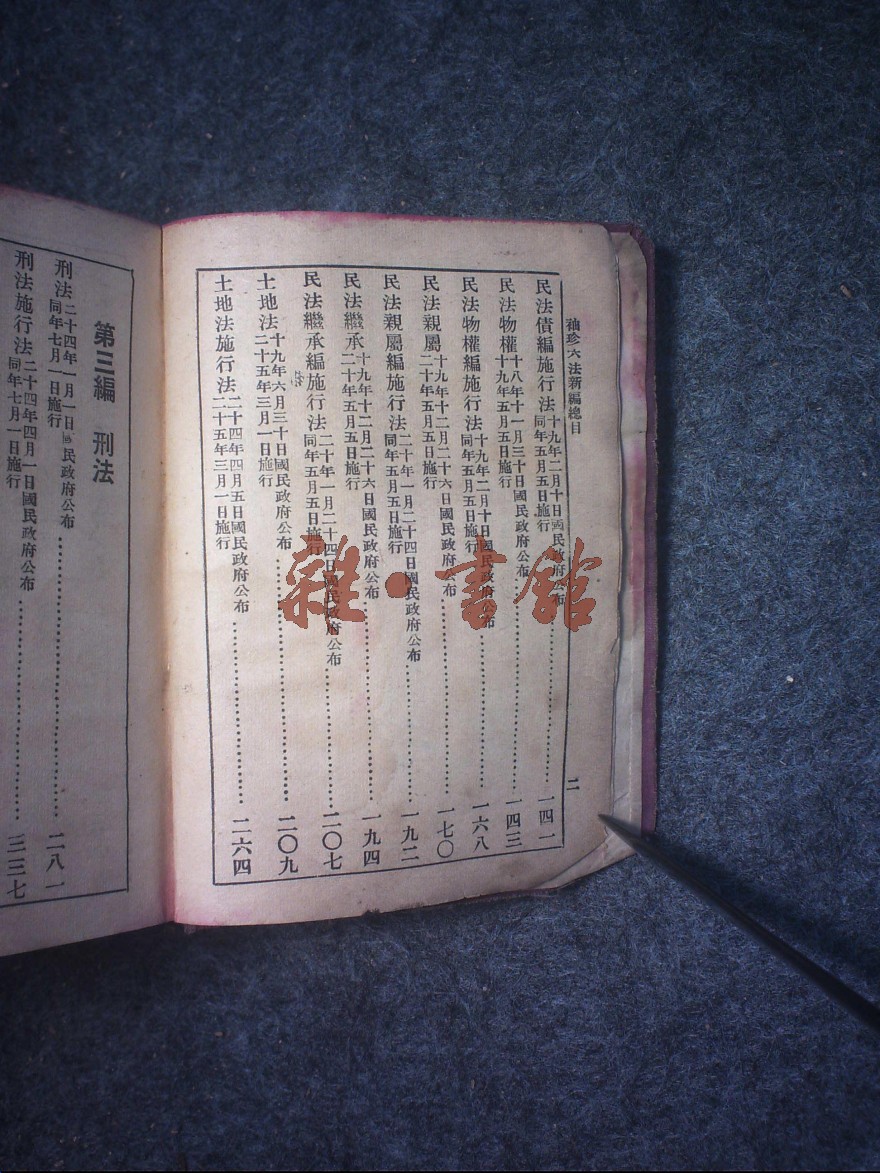 袖珍六法新編總目
二
民法債編施行法 十九年二月十日國民政府公布 同年五月五日施行 一四一
民法物權 十八年十一月三十日國民政府公布 十九年五月五日施行 一四三
民法物權編施行法 十九年二月十日國民政府公布 同年五月五日施行 一六八
民法親屬 十九年十二月二十六日國民政府公布 二十年五月五日施行 一七〇
民法親屬編施行法 二十年一月二十四日國民政府公布 同年五月五日施行 一九二
民法繼承 十九年十二月二十六日國民政府公布 二十年五月五日施行 一九四
民法繼承編施行法 二十年一月二十四日國民政府公布 同年五月五日施行 二〇七
土地法 十九年六月三十日國民政府公布 二十五年三月一日施行 二〇九
土地法施行法 二十四年四月五日國民政府公布 二十五年三月一日施行 二六四
第三編 刑法
刑法 二十四年一月一日國民政府公布 同年七月一日施行 二八一
刑法施行法 二十四年四月一日國民政府公布 同年七月一日施行 三三七
雜·書館